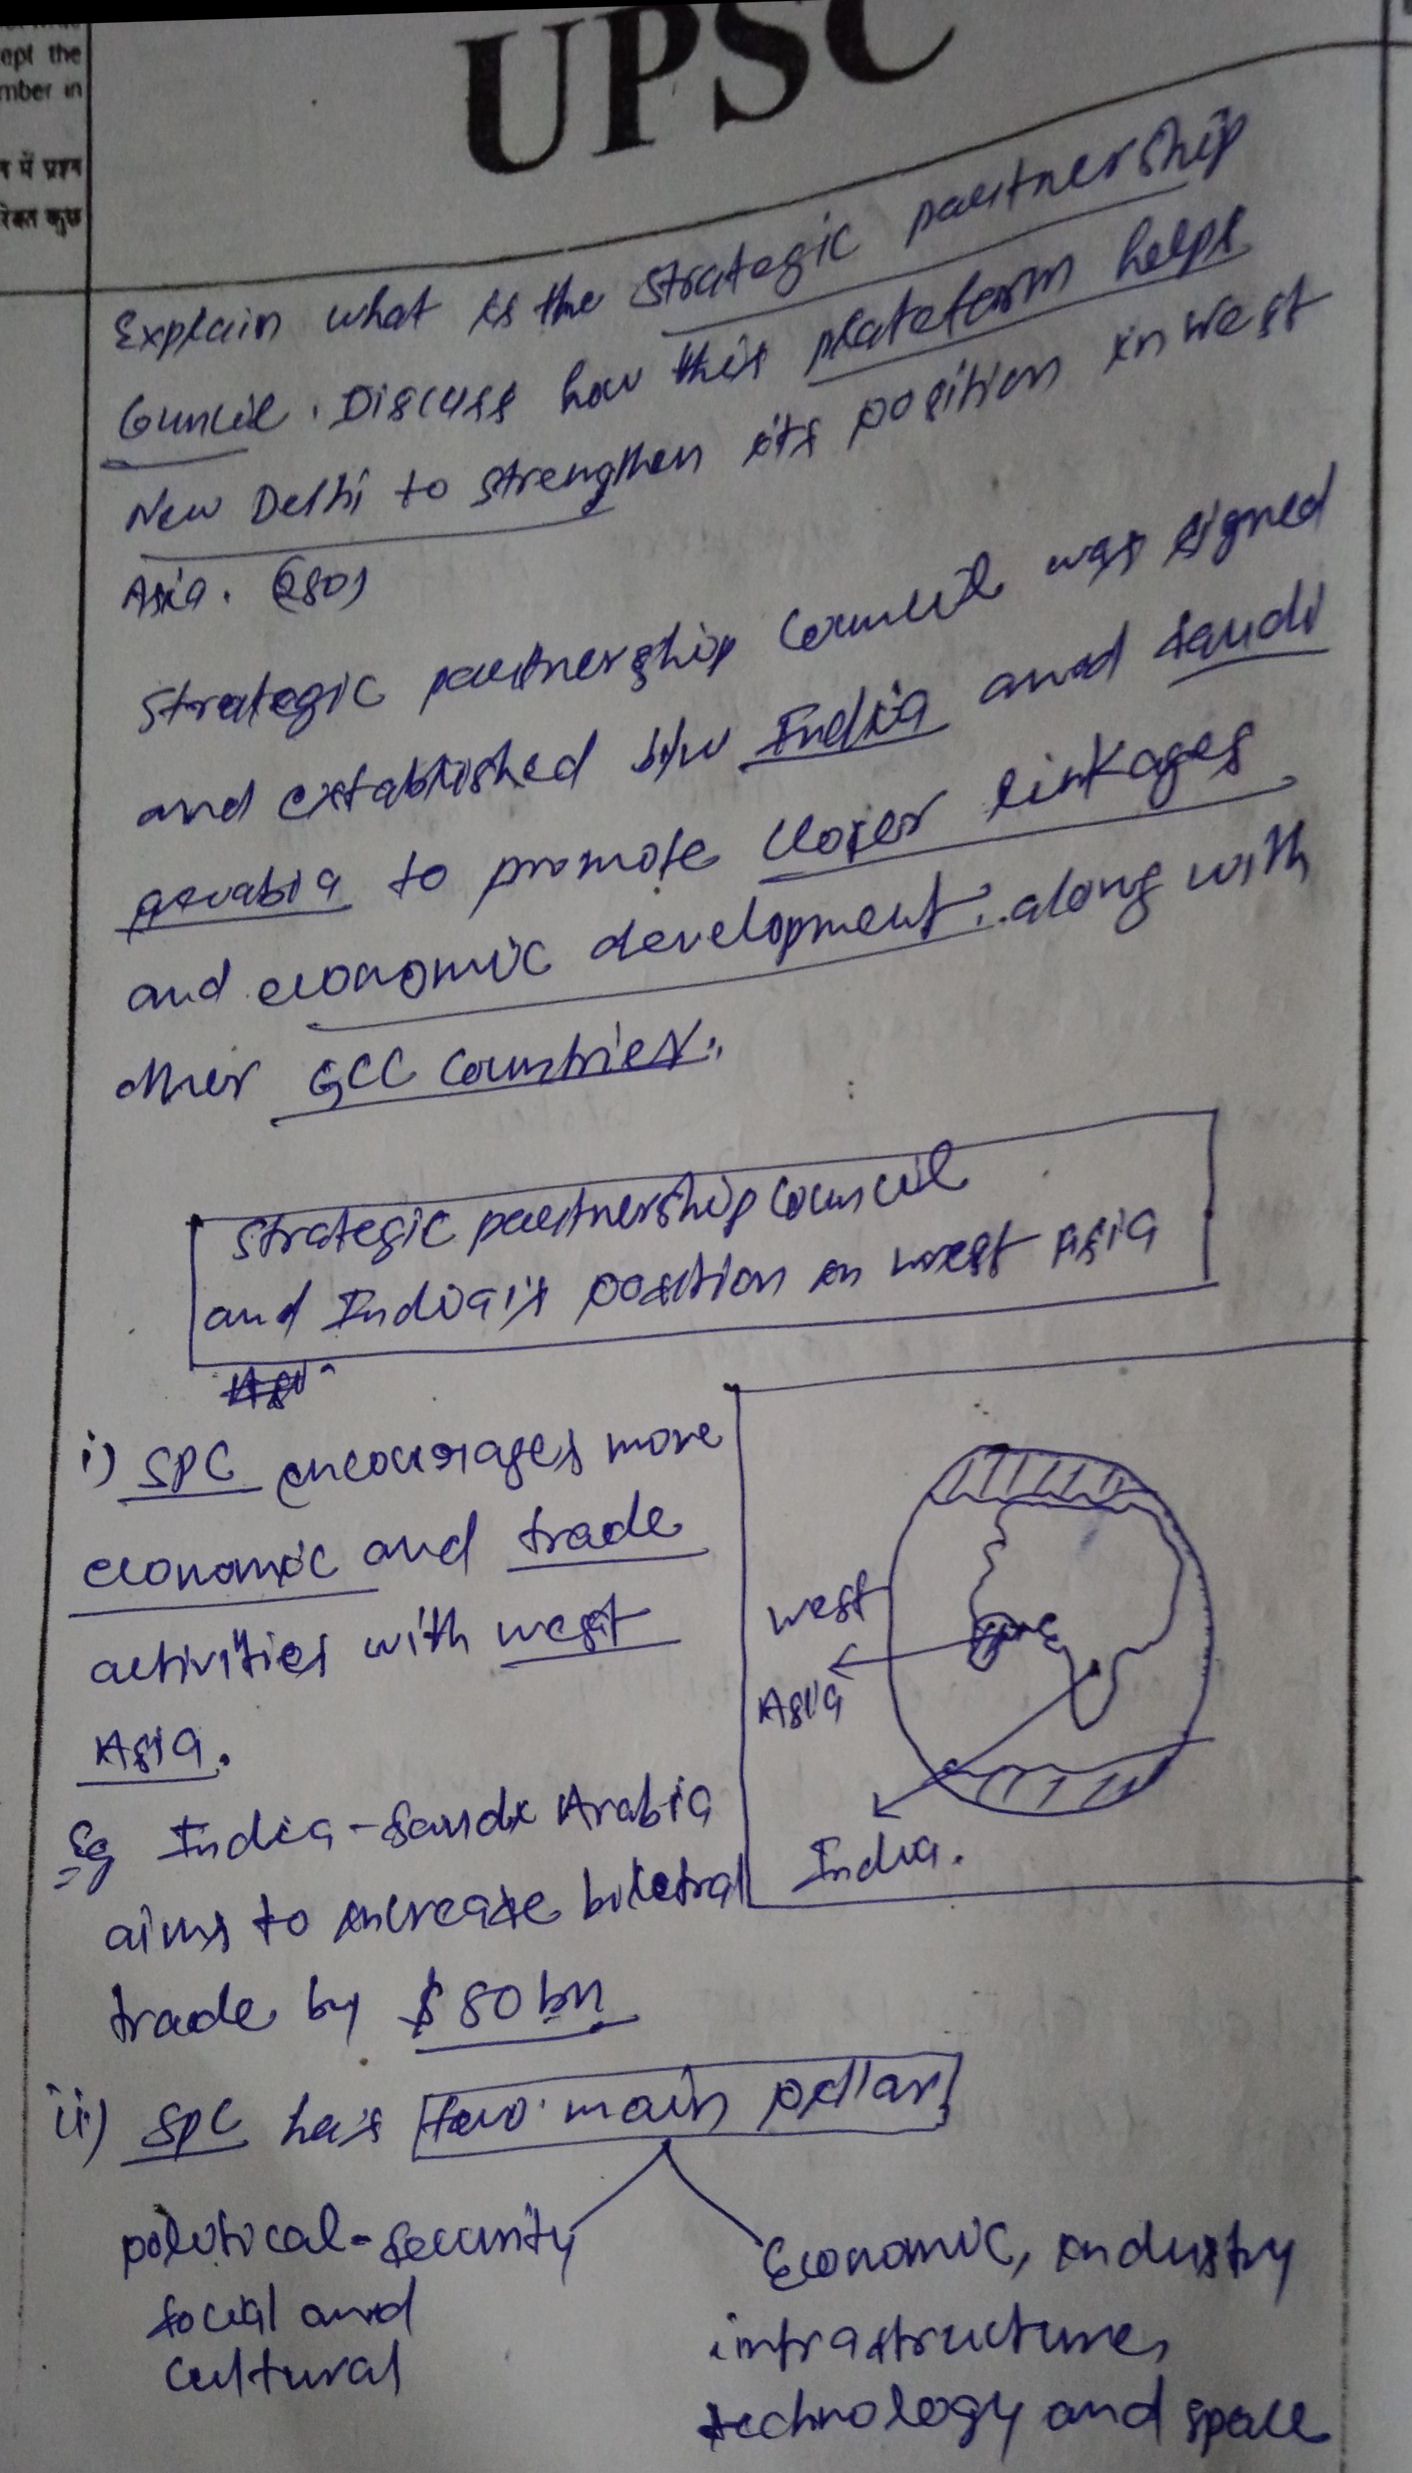 UPSC
ept the
mber in
में प्रश्न
कुछ
Explain what is the strategic partnership
Council. Discuss how this plateform helps
New Delhi to strengthen its position in West
Asia. (250)
Strategic partnership Council was signed
and established b/w India and Saudi
Arabia to promote closer linkages
and economic development along with
other GCC Countries.
Strategic partnership Council
and India's position in west Asia
i) SPC encourages more
economic and trade
activities with west
Asia.
Eg India-Saudi Arabia
aims to increase biletral
trade by $ 80 bn
West
Asia
India.
ii) SPC has two main pillar
political-security
social and
cultural
Economic, industry
infrastructure,
technology and space